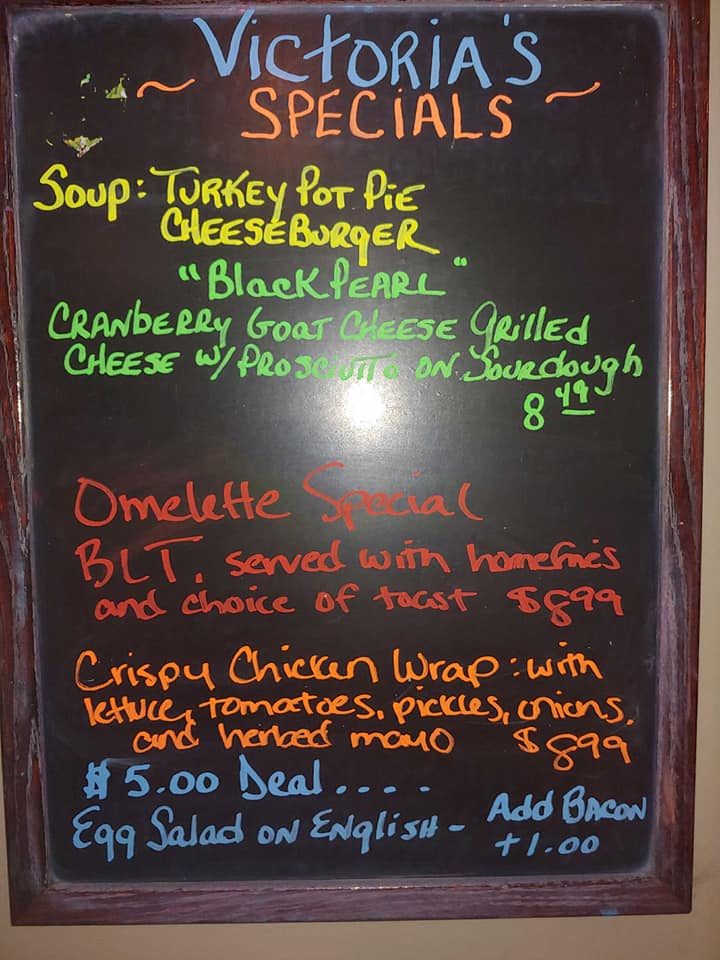 Victoria's
~ Specials ~
Soup: Turkey Pot Pie
Cheeseburger
"Black Pearl"
Cranberry Goat Cheese Grilled
Cheese w/ Prosciutto on Sourdough
8 49
Omelette Special
BLT. served with homefries
and choice of toast $8.99
Crispy Chicken Wrap: with
lettuce, tomatoes, pickles, onions,
and herbed mayo $8.99
$5.00 Deal....
Egg Salad on English - Add Bacon
+1.00